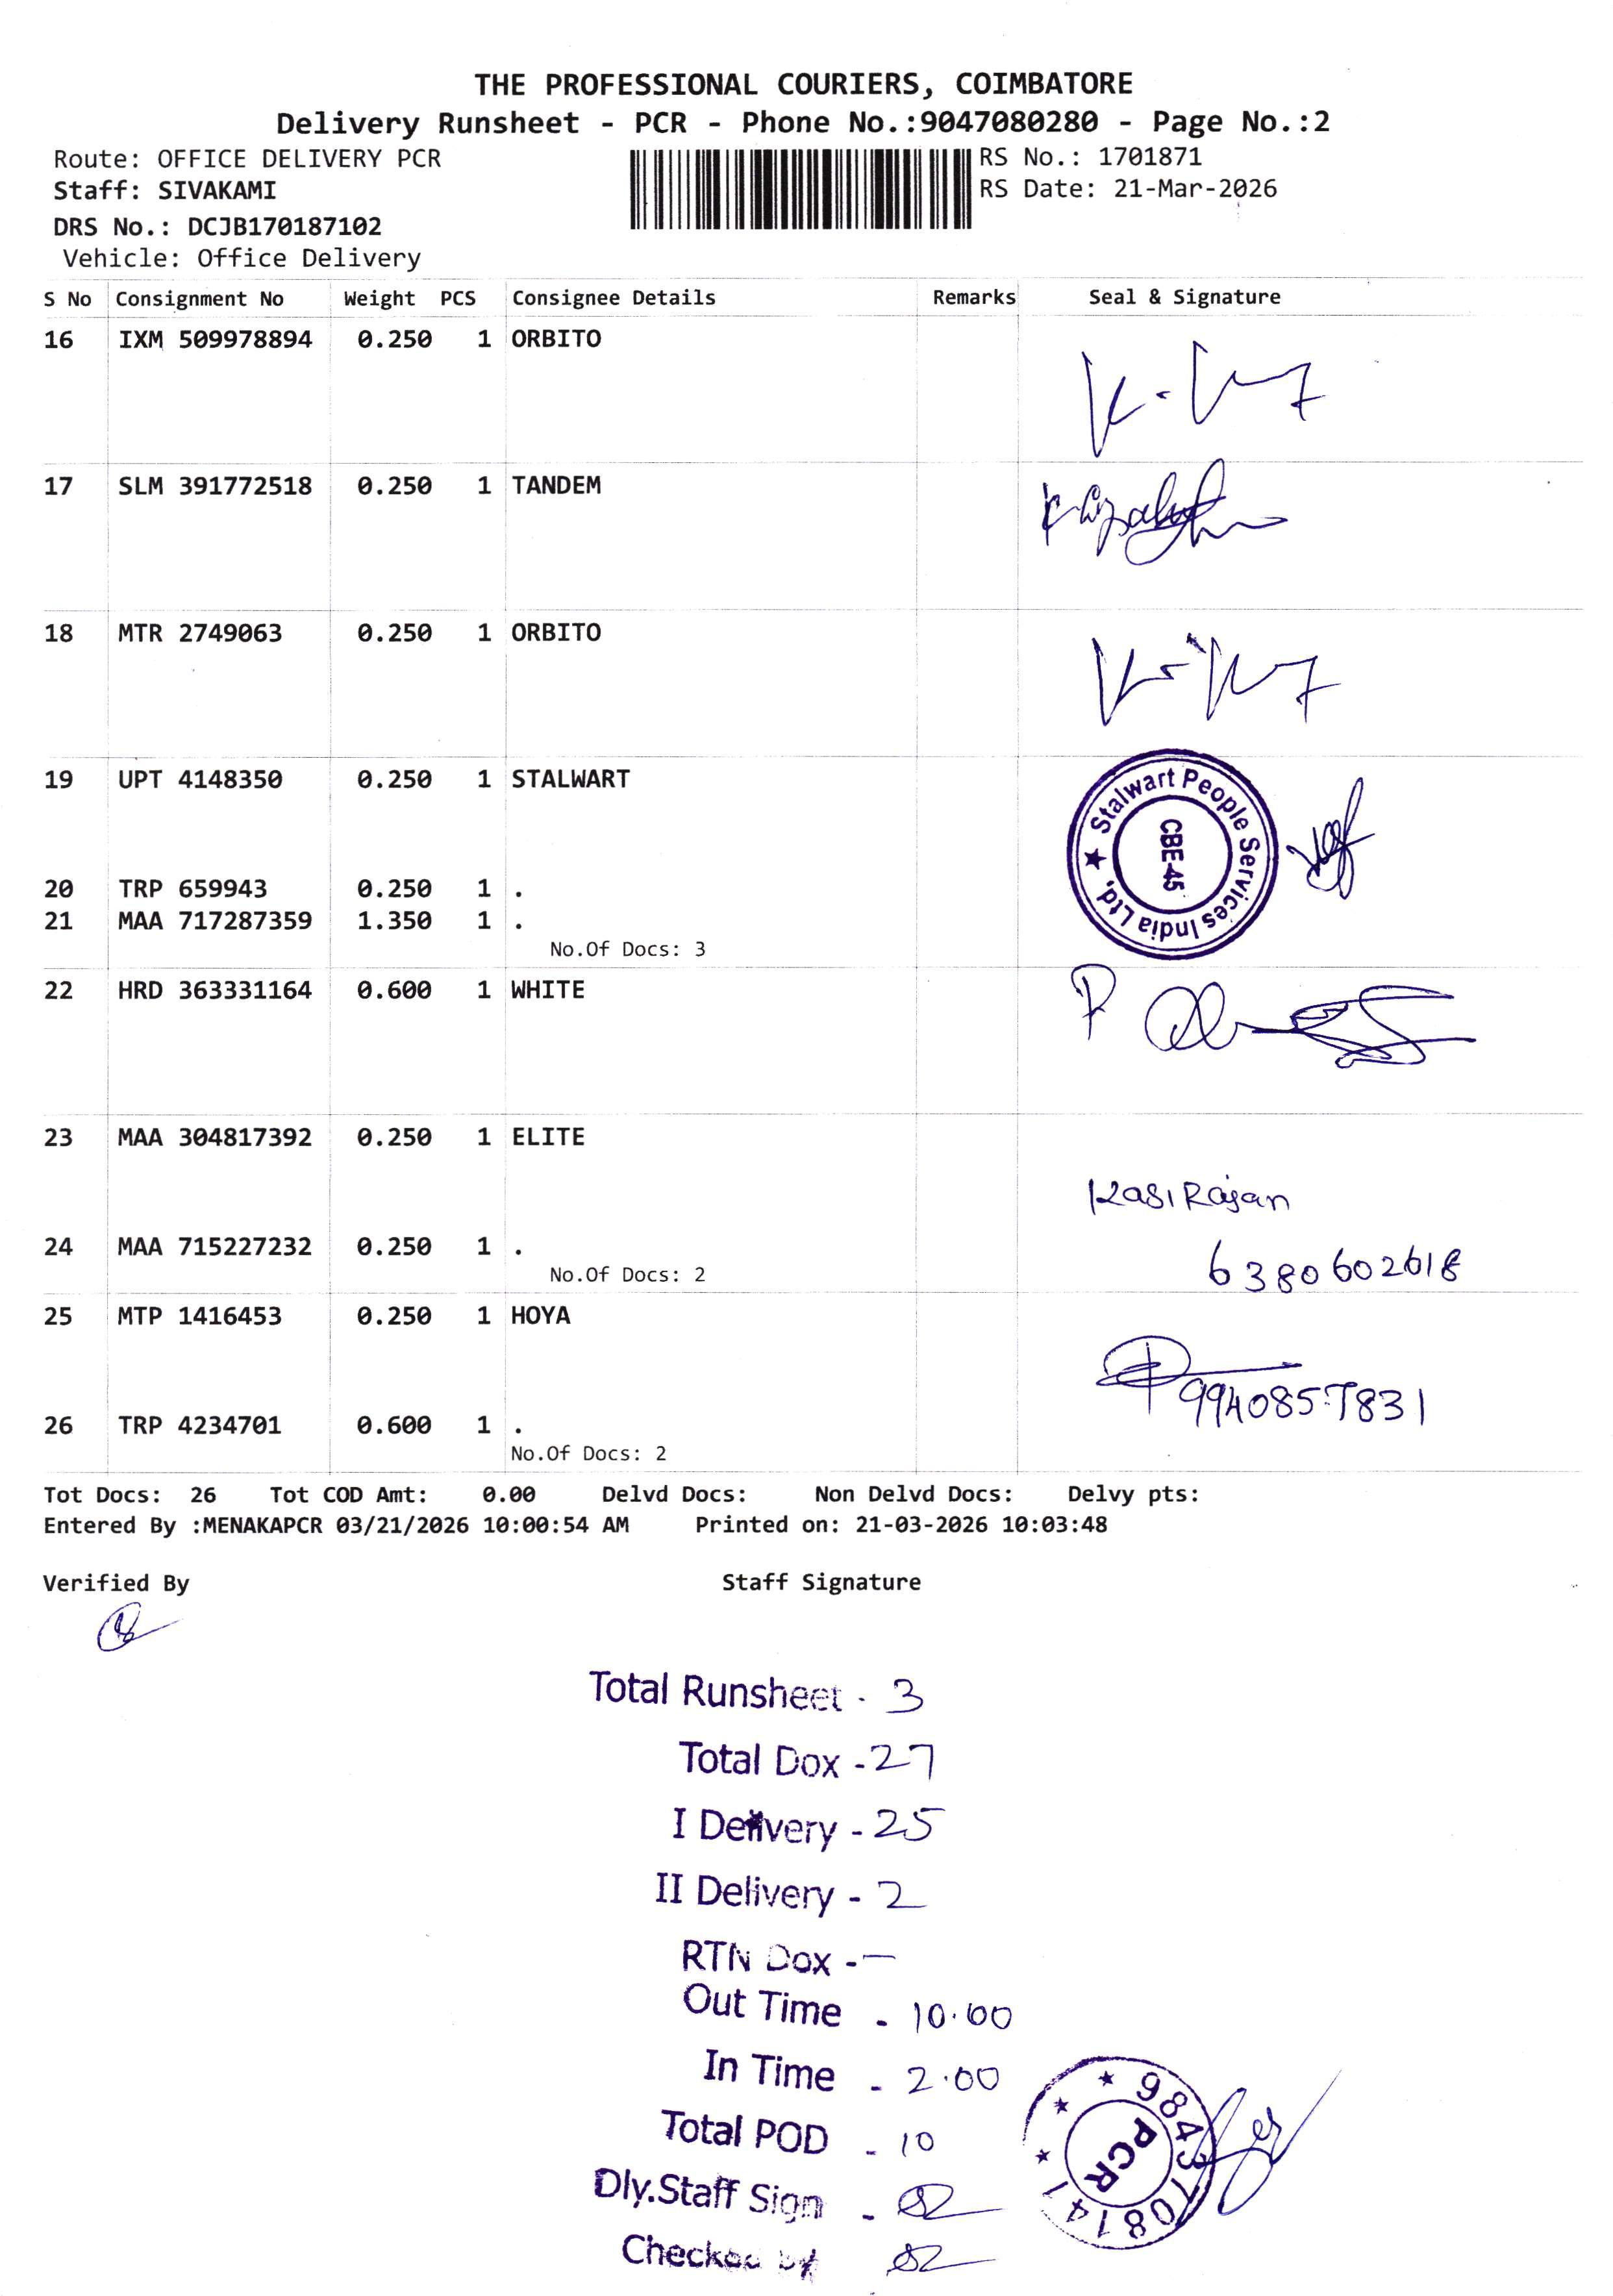 THE PROFESSIONAL COURIERS, COIMBATORE
Delivery Runsheet - PCR - Phone No.:9047080280 - Page No.:2
Route: OFFICE DELIVERY PCR
RS No.: 1701871
Staff: SIVAKAMI
RS Date: 21-Mar-2026
DRS No.: DCJB170187102
Vehicle: Office Delivery
S No Consignment No Weight PCS Consignee Details Remarks Seal & Signature
16 IXM 509978894 0.250 1 ORBITO
17 SLM 391772518 0.250 1 TANDEM
18 MTR 2749063 0.250 1 ORBITO
19 UPT 4148350 0.250 1 STALWART
Stalwart People Services India Ltd.
CBE-45
20 TRP 659943 0.250 1 .
21 MAA 717287359 1.350 1 .
No.Of Docs: 3
22 HRD 363331164 0.600 1 WHITE
23 MAA 304817392 0.250 1 ELITE
KasiRajan
24 MAA 715227232 0.250 1 .
6380602618
No.Of Docs: 2
25 MTP 1416453 0.250 1 HOYA
9940857831
26 TRP 4234701 0.600 1 .
No.Of Docs: 2
Tot Docs: 26 Tot COD Amt: 0.00 Delvd Docs: Non Delvd Docs: Delvy pts:
Entered By :MENAKAPCR 03/21/2026 10:00:54 AM Printed on: 21-03-2026 10:03:48
Verified By Staff Signature
Total Runsheet - 3
Total Dox - 27
I Delivery - 25
II Delivery - 2
RTN Dox - —
Out Time - 10.00
In Time - 2.00
Total POD - 10
Dly.Staff Sign -
Checked by
9843708141
PCR